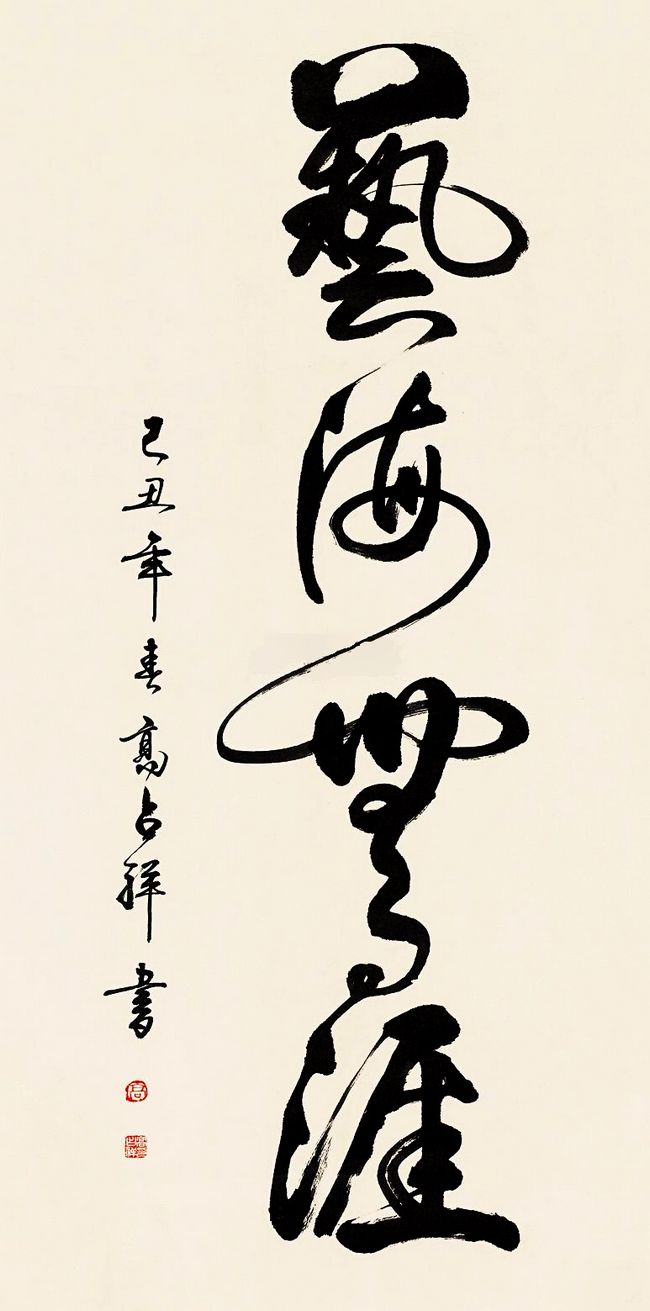 藝海無涯
己丑年春高占祥書
高